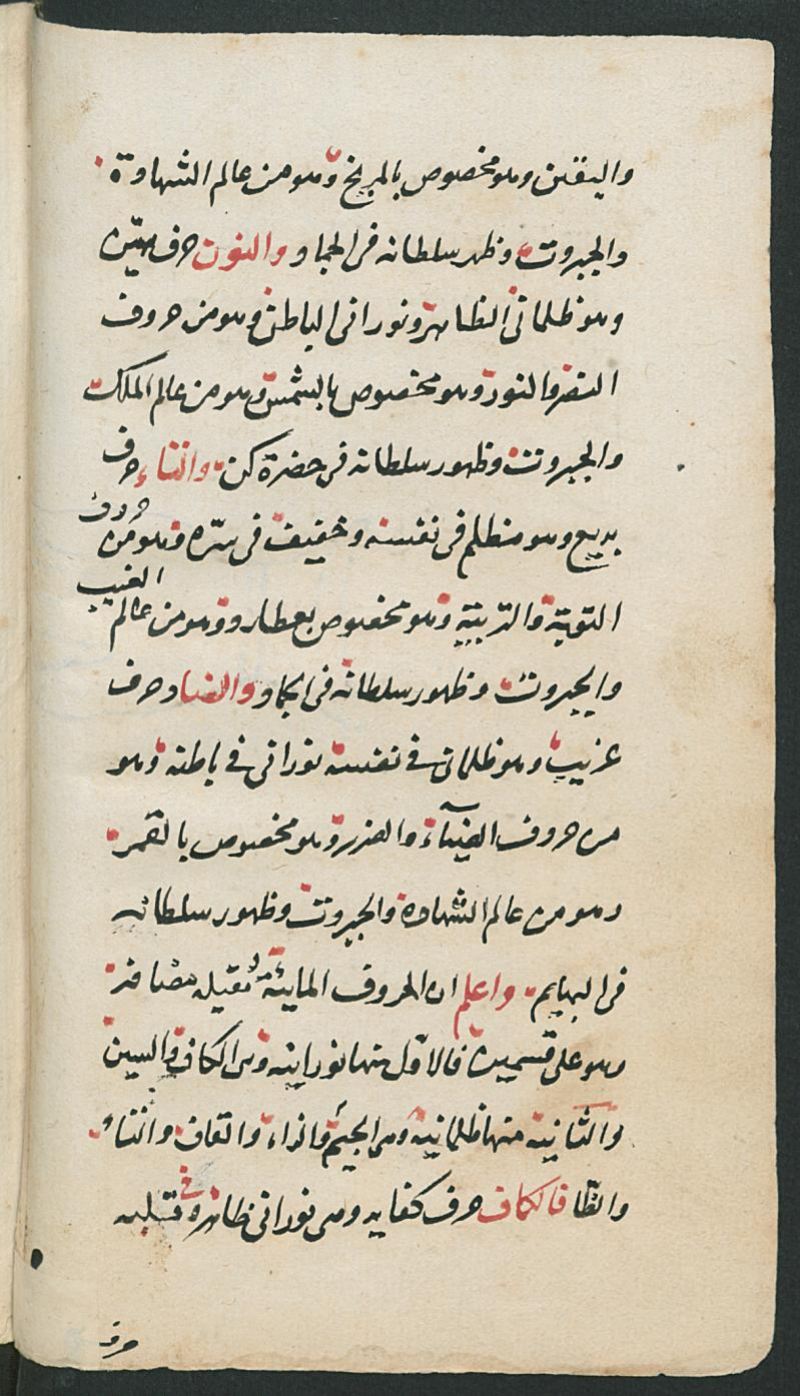 واليقين وهو مخصوص بالمريخ وهو من عالم الشهادة
والجبروت وظهر سلطانه في الجماد والنون حرف
وهو ظلماني الظاهر ونوراني الباطن وهو من حروف
والنور وهو مخصوص بالشمس وهو من عالم الملك
والجبروت وظهور سلطانه في حضرة كن والتاء حرف
بديع وهو مظلم في نفسه وخفيف في سره وهو من حروف
والتربية وهو مخصوص بعطارد وهو من عالم الغيب
والجبروت وظهور سلطانه في الجماد والضاد حرف
غريب وهو ظلماني في نفسه نوراني في باطنه وهو
من حروف الضياء والضرر وهو مخصوص بالقمر
وهو من عالم الشهادة والجبروت وظهور سلطانه
في البهايم واعلم ان الحروف المائية ثقيله
وهو على قسمين فالاول منها نورانيه وهي الكاف والسين
والثانية منها ظلمانية وهي الجيم والزاء والقاف والثاء
والظا فالكاف حرف كفايه وهي نوراني ظاهره في قلبه
حرف